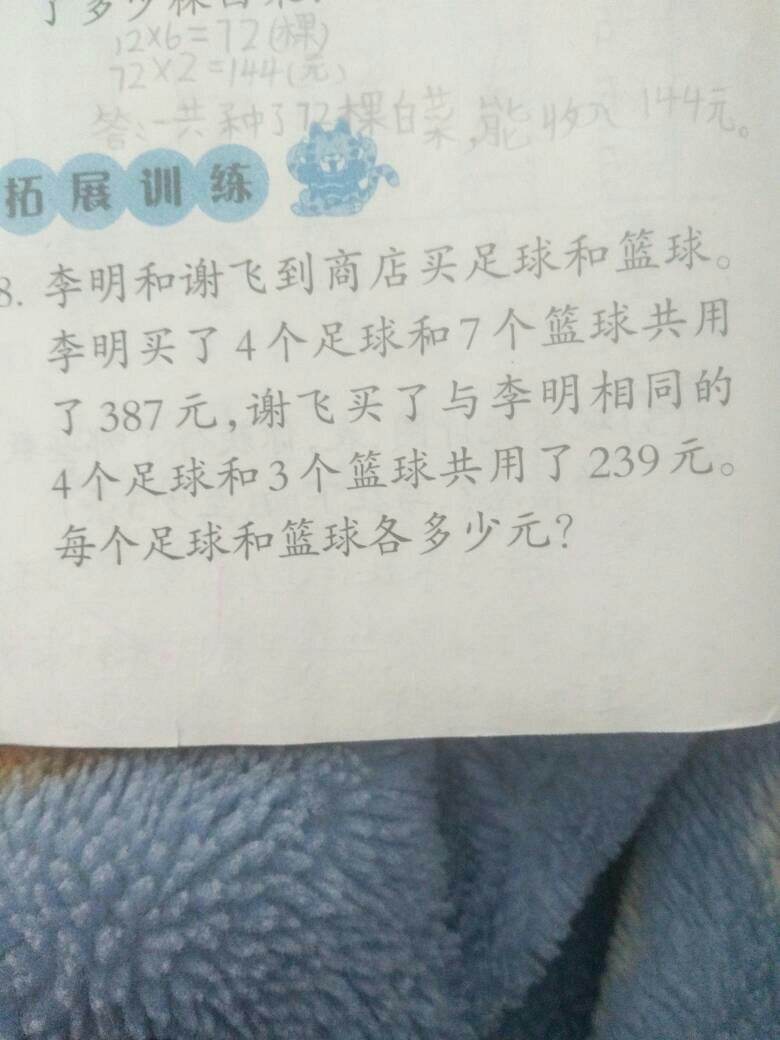 了多少棵白菜?
12×6=72(棵)
72×2=144(元)
答:一共种了72棵白菜,能收入144元。
拓展训练
8. 李明和谢飞到商店买足球和篮球。
李明买了4个足球和7个篮球共用
了387元,谢飞买了与李明相同的
4个足球和3个篮球共用了239元。
每个足球和篮球各多少元?